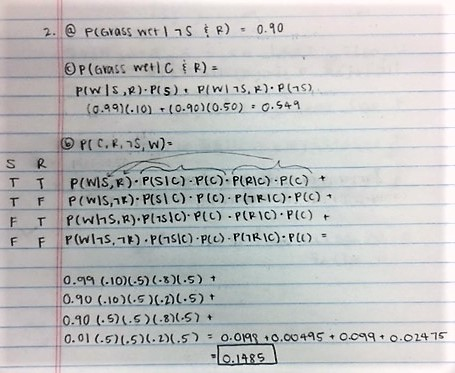 2. ⓐ P(Grass wet | ¬S & R) = 0.90
ⓒ P(Grass wet | C & R) =
P(W|S,R)·P(S) + P(W|¬S,R)·P(¬S)
(0.99)(.10) + (0.90)(0.50) = 0.549
ⓑ P(C,R,¬S,W)=
S R
T T P(W|S,R)·P(S|C)·P(C)·P(R|C)·P(C) +
T F P(W|S,¬R)·P(S|C)·P(C)·P(¬R|C)·P(C) +
F T P(W|¬S,R)·P(¬S|C)·P(C)·P(R|C)·P(C) +
F F P(W|¬S,¬R)·P(¬S|C)·P(C)·P(¬R|C)·P(C) =
0.99 (.10)(.5)(.8)(.5) +
0.90 (.10)(.5)(.2)(.5) +
0.90 (.5)(.5)(.8)(.5) +
0.01 (.5)(.5)(.2)(.5) = 0.0198 + 0.00495 + 0.099 + 0.02475
= 0.1485